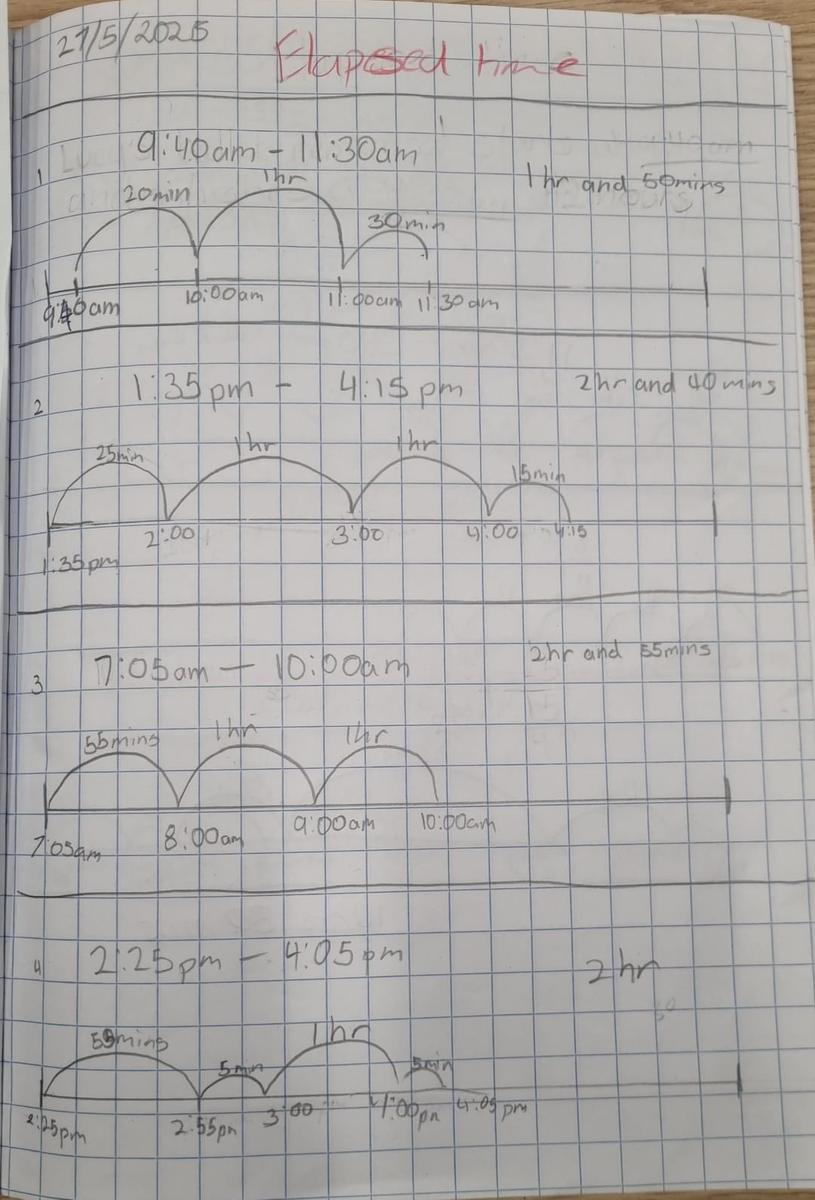 27/5/2025
Elapsed time
1
9:40am - 11:30am
1hr and 50mins
20min 1hr 30min
9:40am 10:00am 11:00am 11:30am
2
1:35pm - 4:15pm
2hr and 40mins
25min 1hr 1hr 15min
1:35pm 2:00 3:00 4:00 4:15
3
7:05am - 10:00am
2hr and 55mins
55mins 1hr 1hr
7:05am 8:00am 9:00am 10:00am
4
2:25pm - 4:05pm
2hr
1hr
5min 5min
2:25pm 2:55pm 3:00 4:00pm 4:05pm